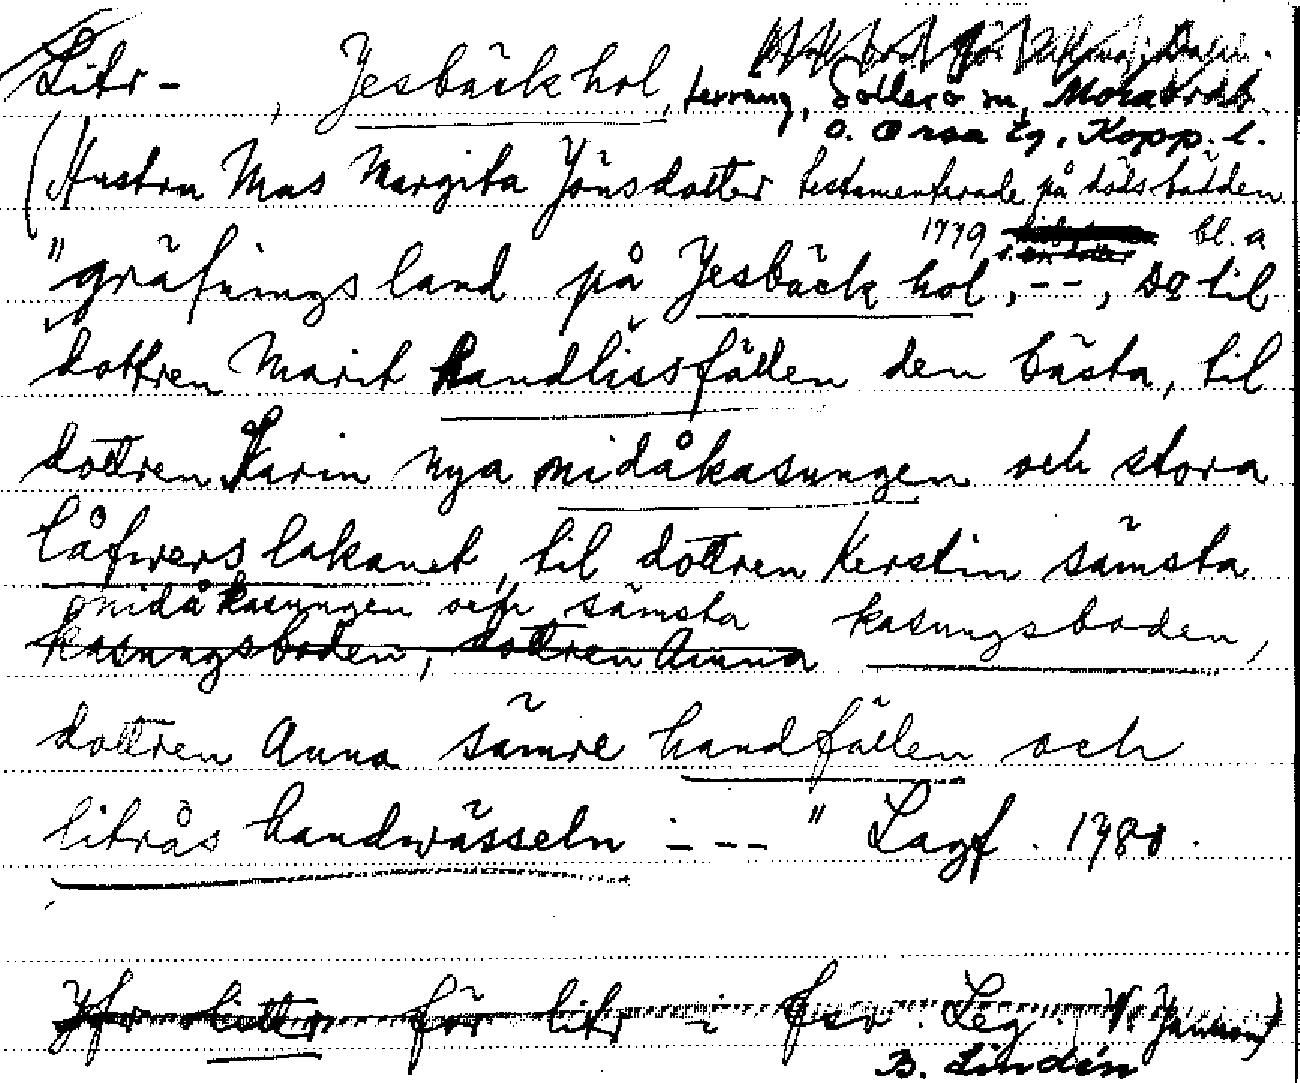 Litr - , Jesbäckhol, terräng, Sollerö sn, Mora tg
o. Orsa tg, Kopp. l.
(Hustru Mas Margita Jönsdotter testamenterade på dödsbädden
1779 bl. a
"gräfningsland på Jesbäck hol, --, D8 til
dottren Marit handlissfällen den bästa, til
dottren Karin nya nidåkasungen och stora
låfwerslakanet, til dottren Kerstin sämsta
nidåkasungen och sämsta kasungsboden,
kasungsboden, dottren Anna
dottren Anna sämre handfällen och
litrås handwässeln --- " Lagf. 1780.
Jfr litr för litr i fsv. Leg.
B. Lindén